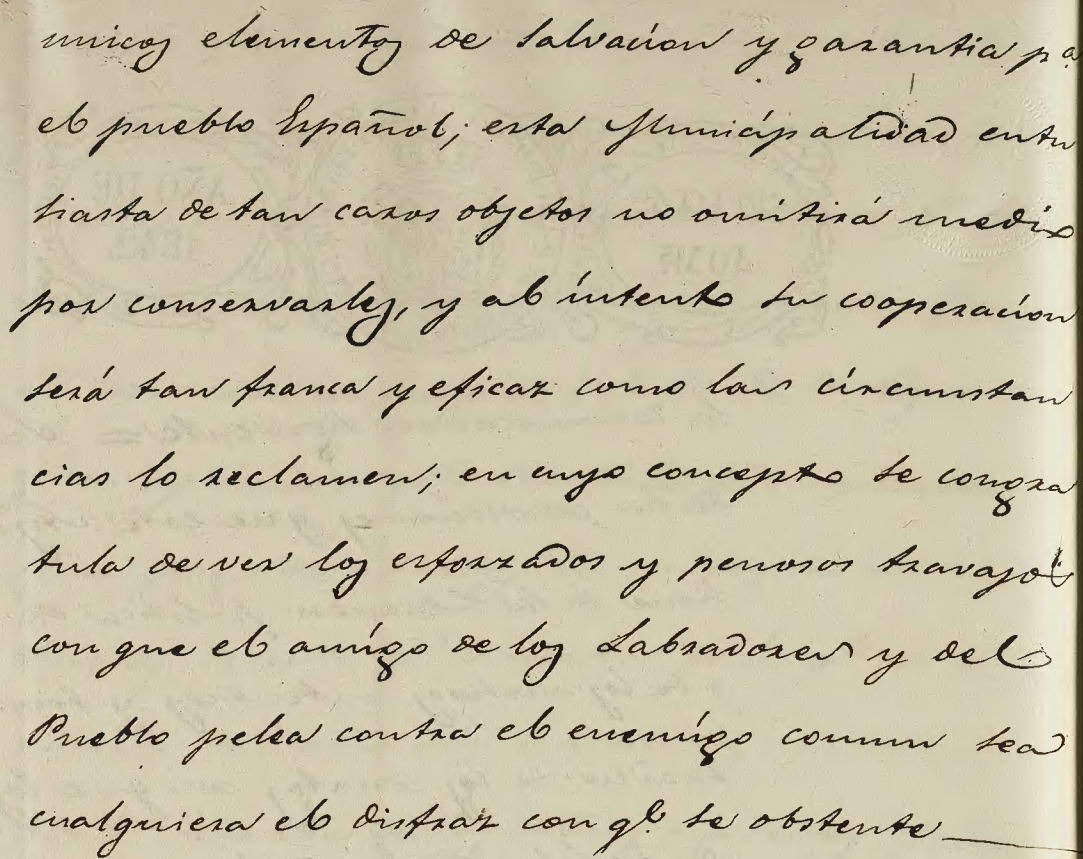 unicos elementos de salvacion y garantia pa
el pueblo Español; esta Municipalidad entu
siasta de tan caros objetos no omitirá medio
por conservarles, y al intento su cooperacion
será tan franca y eficaz como las circunstan
cias lo reclamen; en cuyo concepto se congra
tula de ver los esforzados y penosos travajos
con que el amigo de los Labradores y del
Pueblo pelea contra el enemigo comun sea
cualquiera el disfraz con qe. se obstente